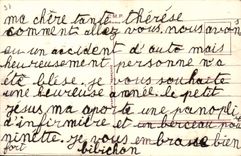 ma chère tante thérèse
comment allez vous, nous avons
eu un accident d'auto mais
heureusement personne n'a
été blesé. je vous souhaite
une heureuse année. le petit
jesus ma aporté une panoplie
d'infirmière et un berceau pour
ninette. je vous embrasse bien
fort bibichon